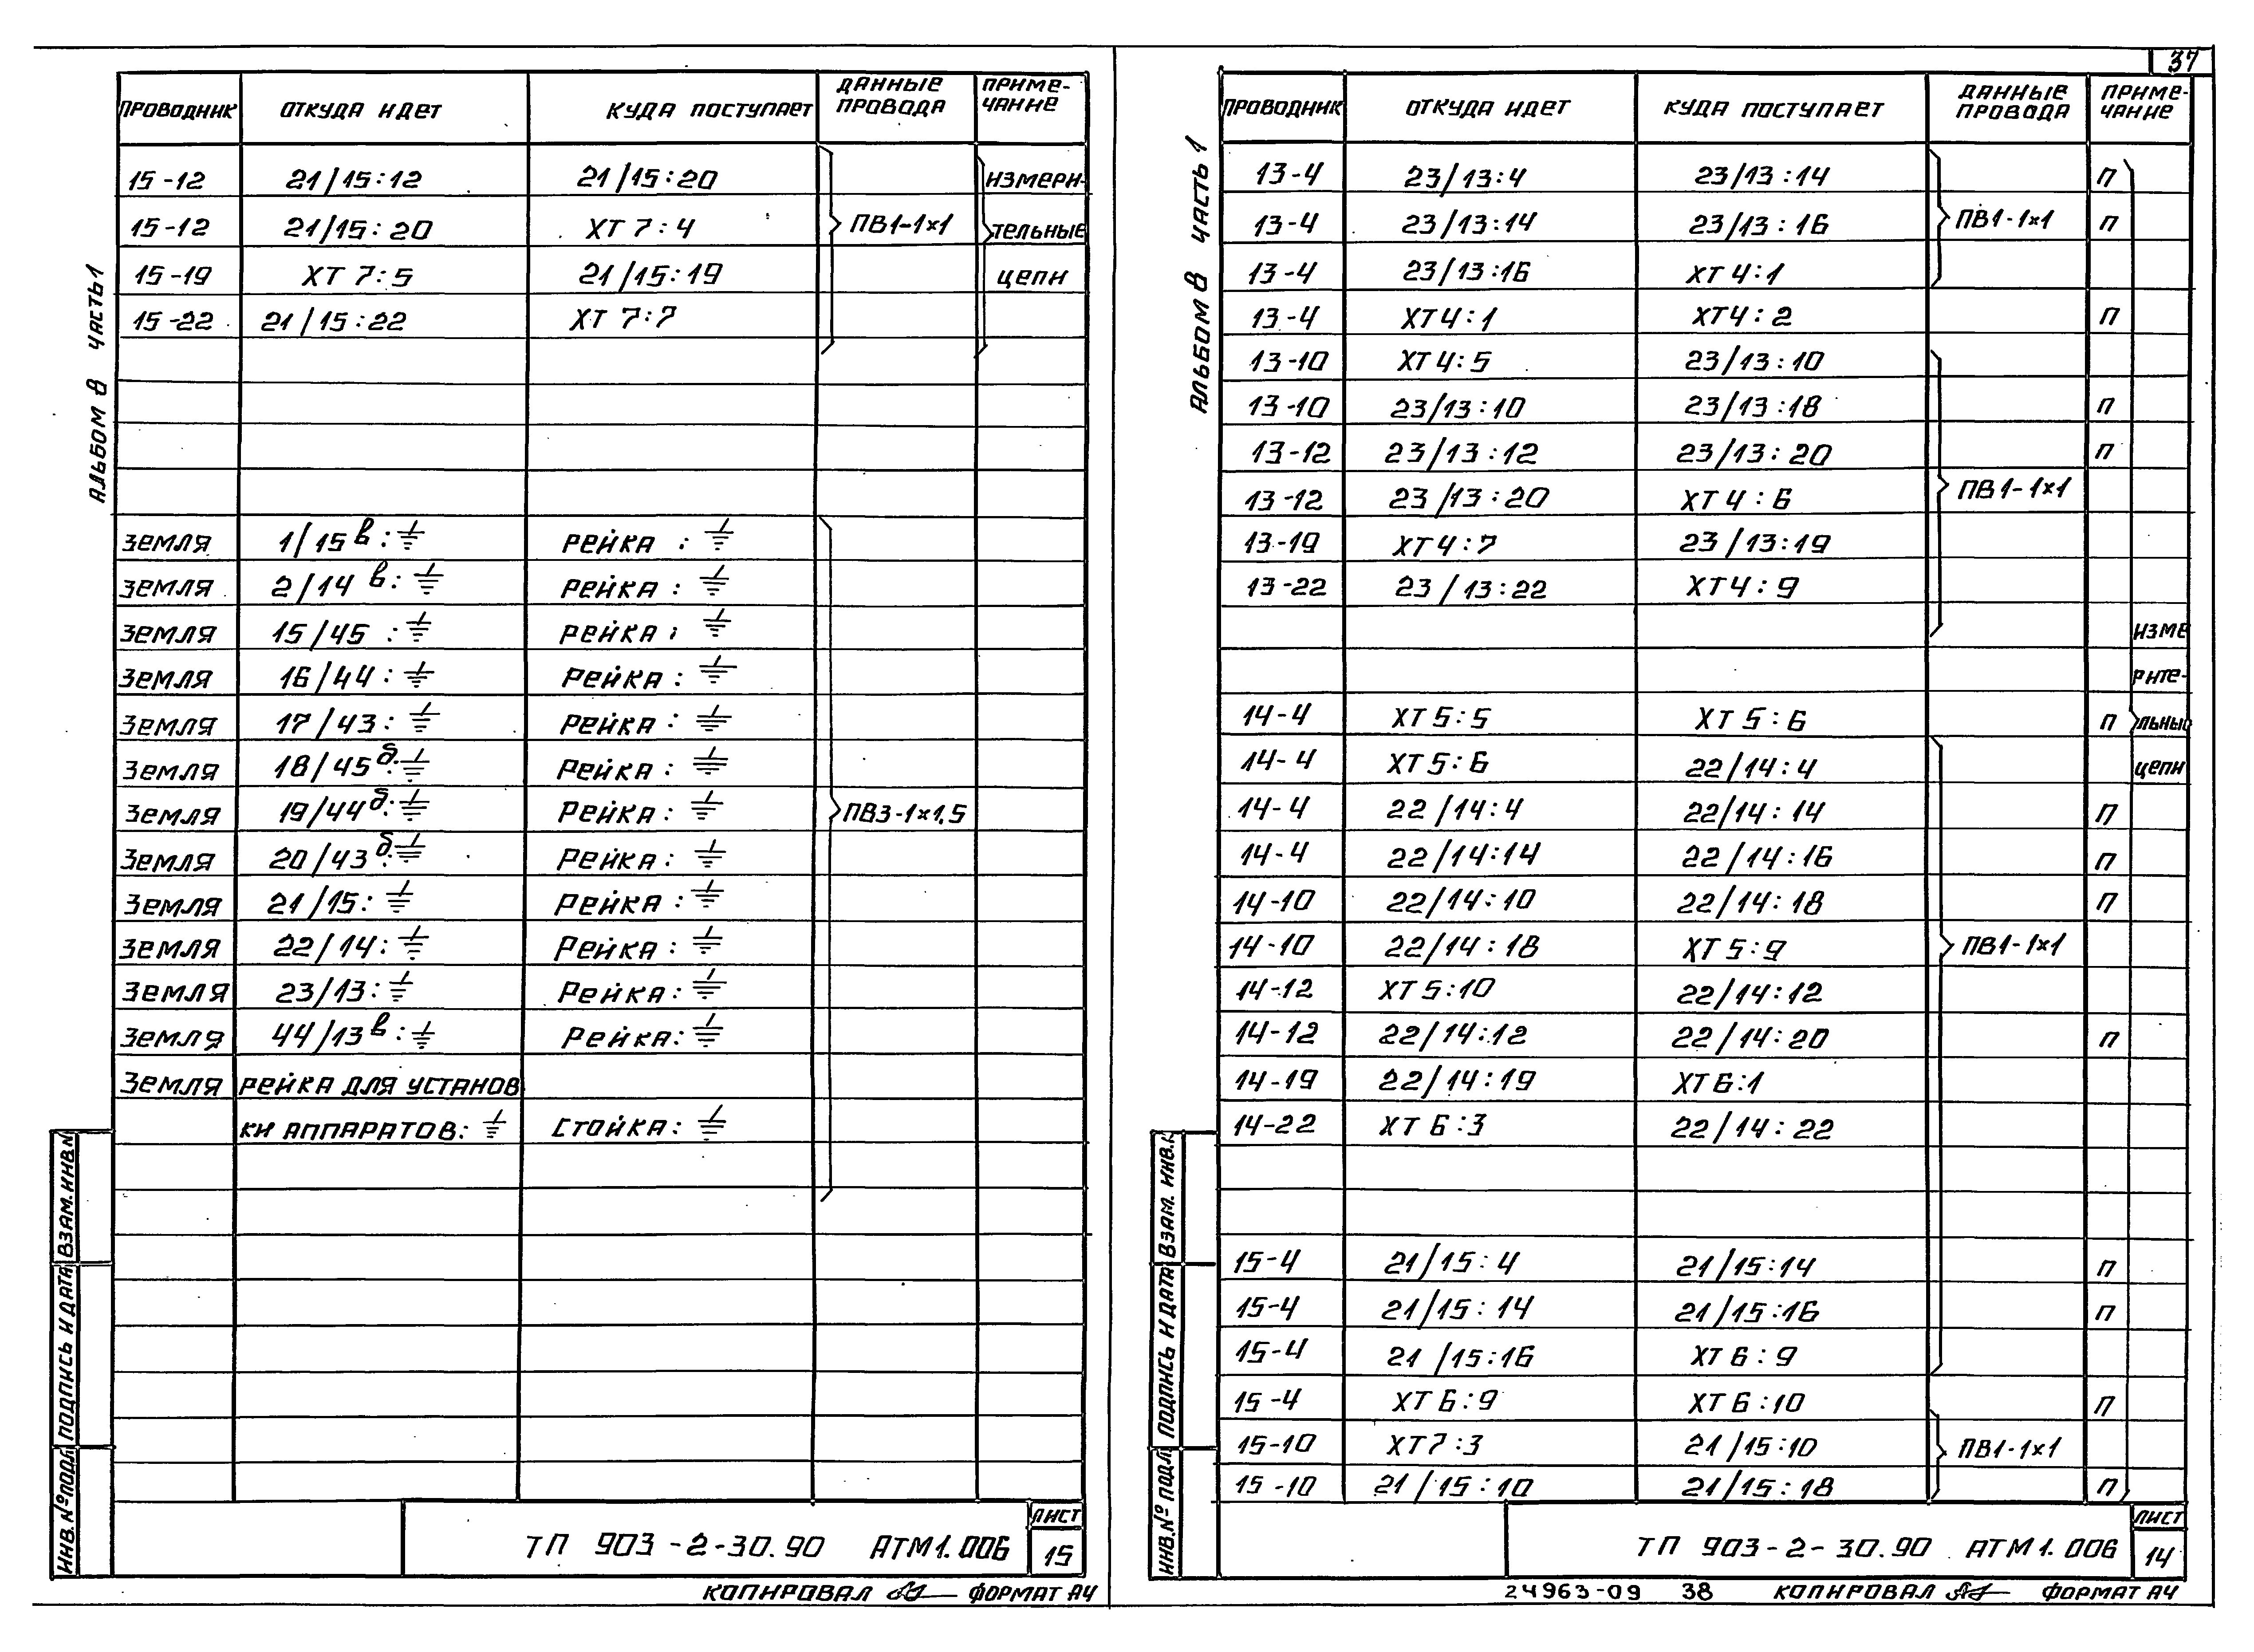 37
АЛЬБОМ 8 ЧАСТЬ 1
ПРОВОДНИК ОТКУДА ИДЕТ КУДА ПОСТУПАЕТ ДАННЫЕ ПРОВОДА ПРИМЕ-ЧАНИЕ
15-12 21/15:12 21/15:20 ИЗМЕРИ-
15-12 21/15:20 ХТ 7:4 ПВ1-1×1 ТЕЛЬНЫЕ
15-19 ХТ 7:5 21/15:19 ЦЕПИ
15-22 21/15:22 ХТ 7:7
ЗЕМЛЯ 1/15в:⏚ РЕЙКА:⏚
ЗЕМЛЯ 2/14в:⏚ РЕЙКА:⏚
ЗЕМЛЯ 15/45:⏚ РЕЙКА:⏚
ЗЕМЛЯ 16/44:⏚ РЕЙКА:⏚
ЗЕМЛЯ 17/43:⏚ РЕЙКА:⏚
ЗЕМЛЯ 18/45б:⏚ РЕЙКА:⏚
ЗЕМЛЯ 19/44б:⏚ РЕЙКА:⏚ ПВ3-1×1,5
ЗЕМЛЯ 20/43б:⏚ РЕЙКА:⏚
ЗЕМЛЯ 21/15:⏚ РЕЙКА:⏚
ЗЕМЛЯ 22/14:⏚ РЕЙКА:⏚
ЗЕМЛЯ 23/13:⏚ РЕЙКА:⏚
ЗЕМЛЯ 44/13в:⏚ РЕЙКА:⏚
ЗЕМЛЯ РЕЙКА ДЛЯ УСТАНОВ
КИ АППАРАТОВ:⏚ СТОЙКА:⏚
ИНВ.№ ПОДЛ ПОДПИСЬ И ДАТА ВЗАМ.ИНВ.№
ТП 903-2-30.90 АТМ1.006 ЛИСТ 15
КОПИРОВАЛ ФОРМАТ А4
АЛЬБОМ 8 ЧАСТЬ 1
ПРОВОДНИК ОТКУДА ИДЕТ КУДА ПОСТУПАЕТ ДАННЫЕ ПРОВОДА ПРИМЕ-ЧАНИЕ
13-4 23/13:4 23/13:14 П
13-4 23/13:14 23/13:16 ПВ1-1×1 П
13-4 23/13:16 ХТ4:1
13-4 ХТ4:1 ХТ4:2 П
13-10 ХТ4:5 23/13:10
13-10 23/13:10 23/13:18 П
13-12 23/13:12 23/13:20 П
13-12 23/13:20 ХТ4:6 ПВ1-1×1
13-19 ХТ4:7 23/13:19
13-22 23/13:22 ХТ4:9
ИЗМЕ
РИТЕ-
14-4 ХТ5:5 ХТ5:6 П ЛЬНЫЕ
14-4 ХТ5:6 22/14:4 ЦЕПИ
14-4 22/14:4 22/14:14 П
14-4 22/14:14 22/14:16 П
14-10 22/14:10 22/14:18 П
14-10 22/14:18 ХТ5:9 ПВ1-1×1
14-12 ХТ5:10 22/14:12
14-12 22/14:12 22/14:20 П
14-19 22/14:19 ХТ6:1
14-22 ХТ6:3 22/14:22
15-4 21/15:4 21/15:14 П
15-4 21/15:14 21/15:16 П
15-4 21/15:16 ХТ6:9
15-4 ХТ6:9 ХТ6:10 П
15-10 ХТ7:3 21/15:10 ПВ1-1×1
15-10 21/15:10 21/15:18 П
ИНВ.№ ПОДЛ ПОДПИСЬ И ДАТА ВЗАМ. ИНВ.№
ТП 903-2-30.90 АТМ1.006 ЛИСТ 14
24963-09 38 КОПИРОВАЛ ФОРМАТ А4